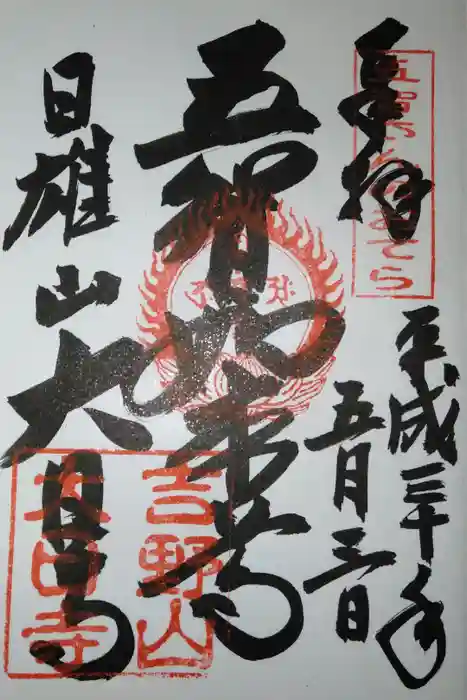 奉拝
平成三十年
五月三日
五智如来
日雄山大日寺
吉野山
大日寺